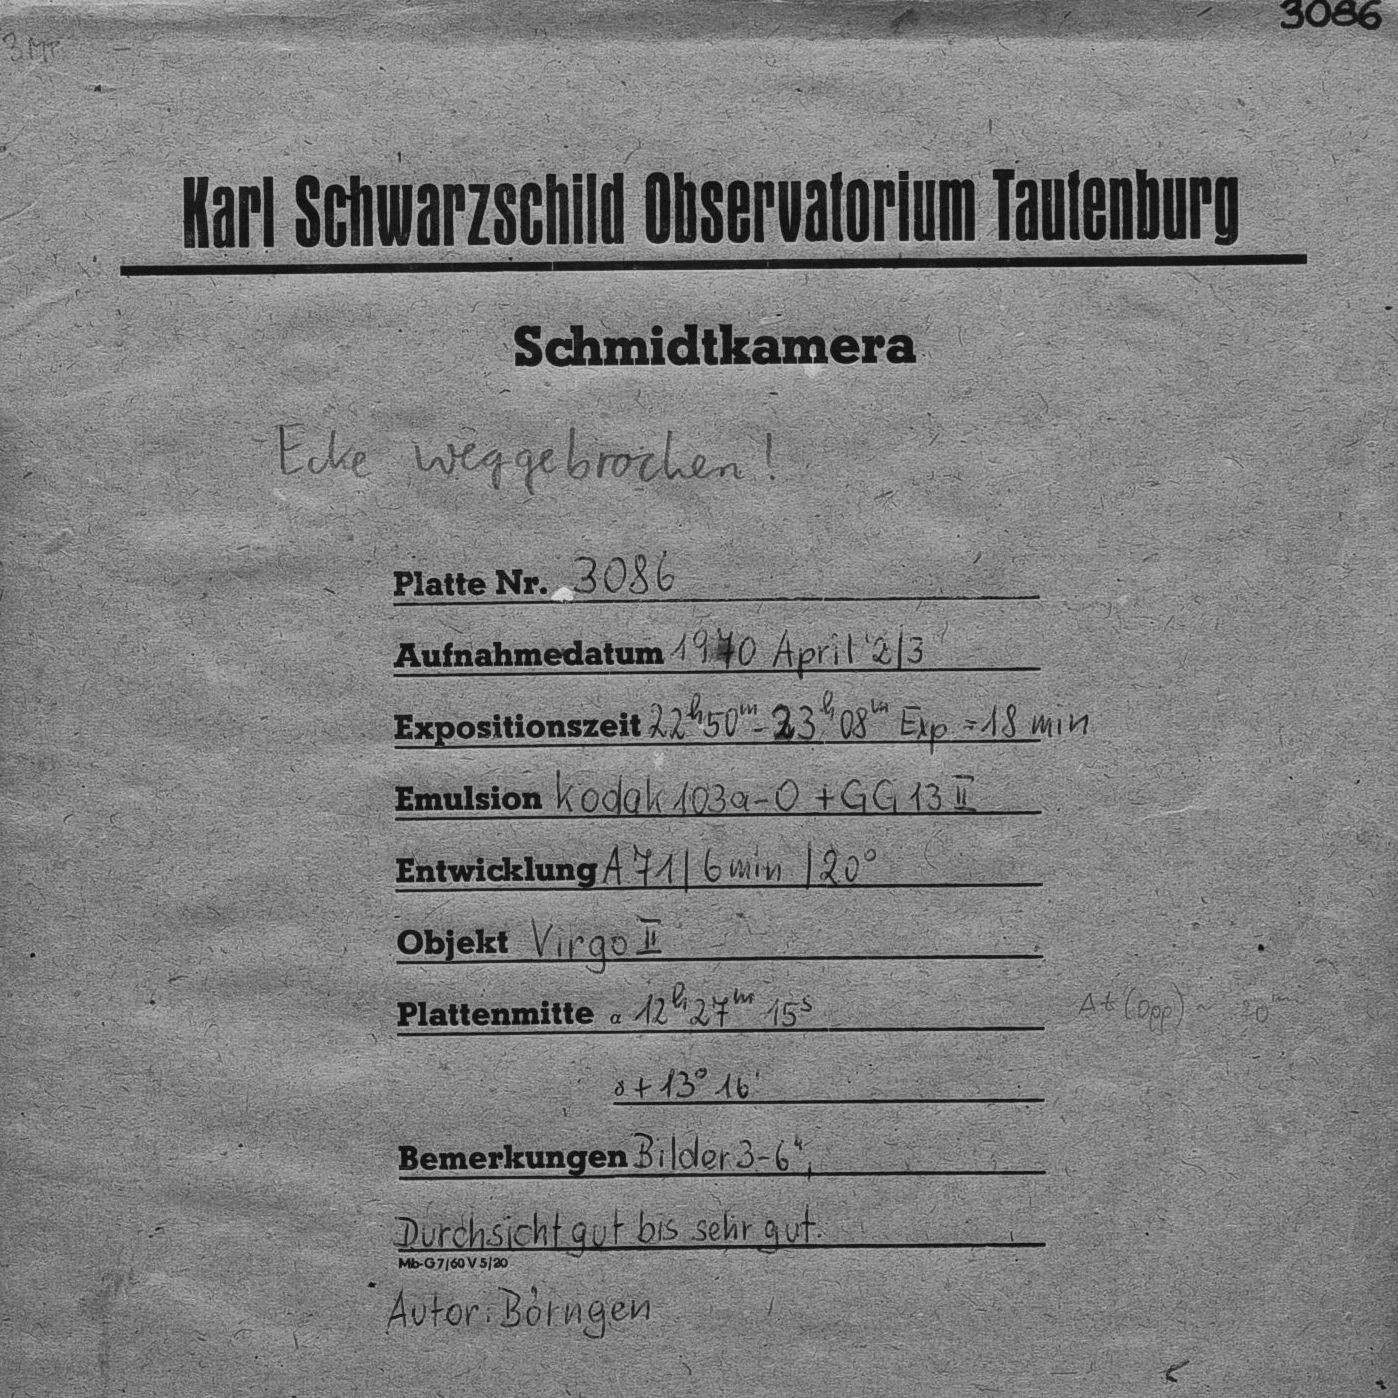 3086
3 MP -
Karl Schwarzschild Observatorium Tautenburg
Schmidtkamera
Ecke weggebrochen!
Platte Nr. 3086
Aufnahmedatum 1970 April 2/3
Expositionszeit 22ʰ50ᵐ - 23ʰ08ᵐ Exp. = 18 min
Emulsion Kodak 103a-O + GG 13 II
Entwicklung A 71 | 6 min | 20°
Objekt Virgo II
Plattenmitte α 12ʰ 27ᵐ 15ˢ Δt (Opp) ~ 20ᵐ
δ + 13° 16'
Bemerkungen Bilder 3-6",
Durchsicht gut bis sehr gut.
Mb-G 7/60 V 5/20
Autor: Börngen